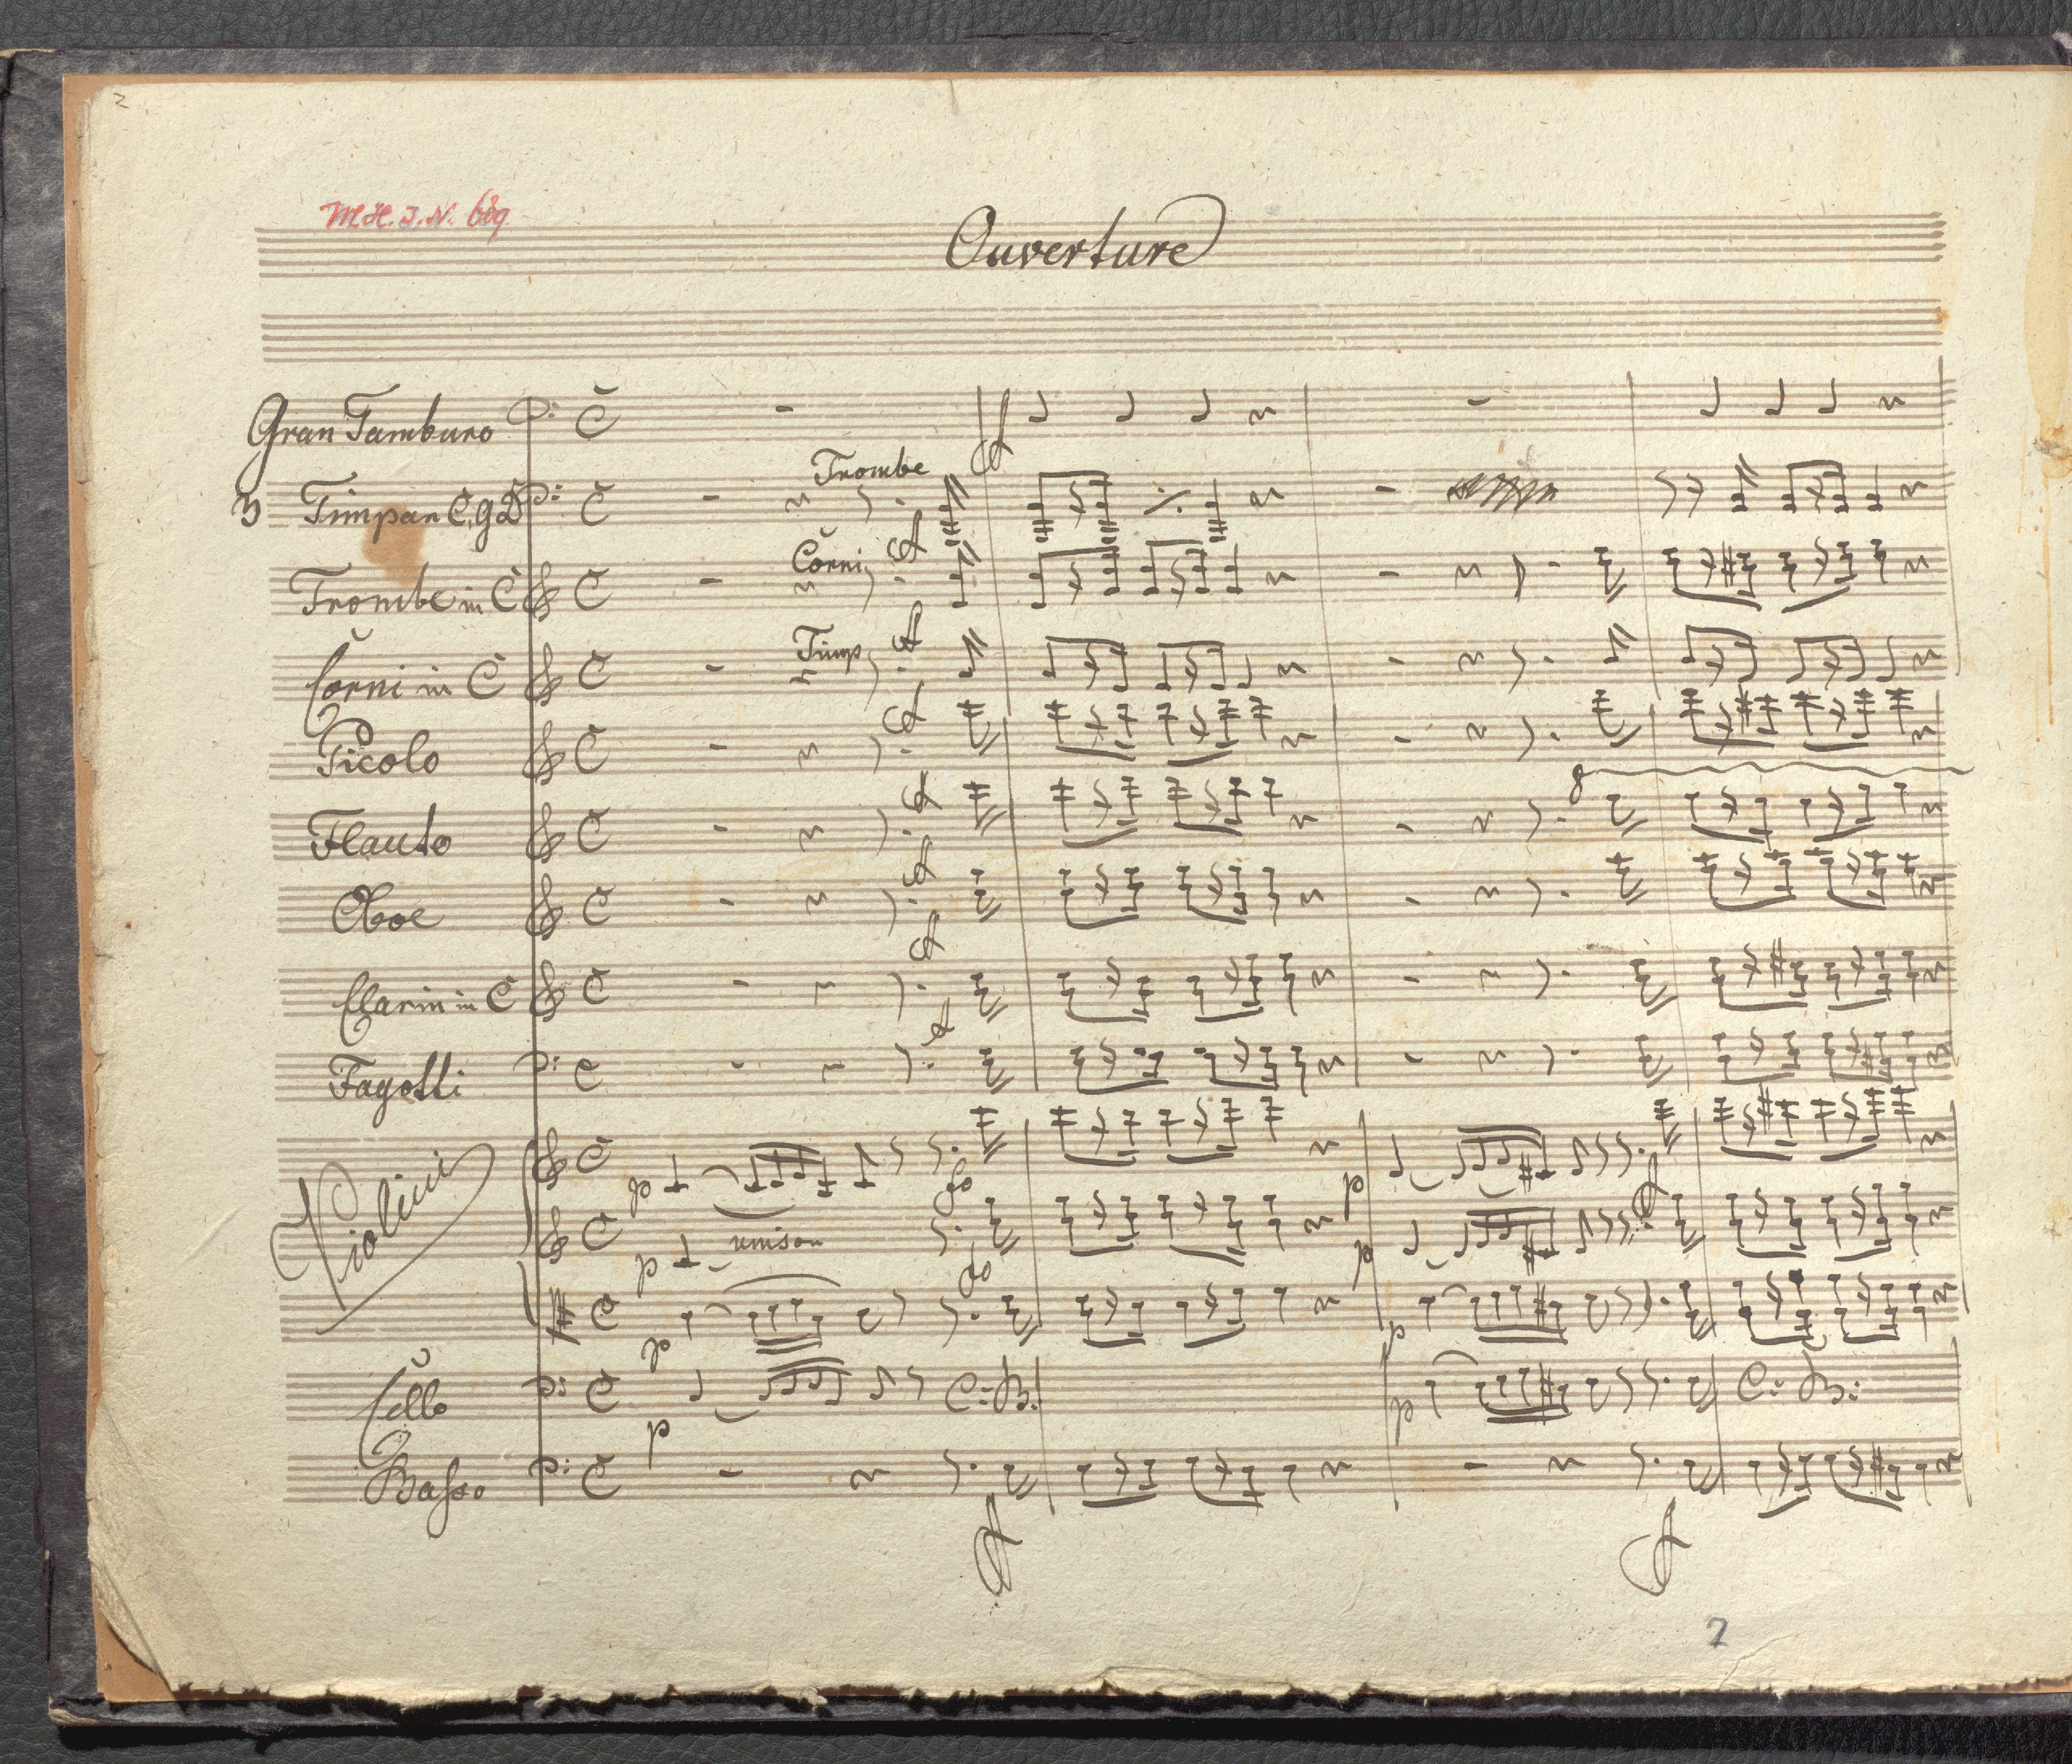 2
Ouverture
Gran Tamburo
Trombe
3 Timpan C, g D
Corni
Trombe in C
Timp
Corni in C
Picolo
8
Flauto
Oboe
Clarin in C
Fagotti
p
fo
p
Violini
p unison
p
fo
p
p
Cello
C: B.
p
C: B:
p
Basso